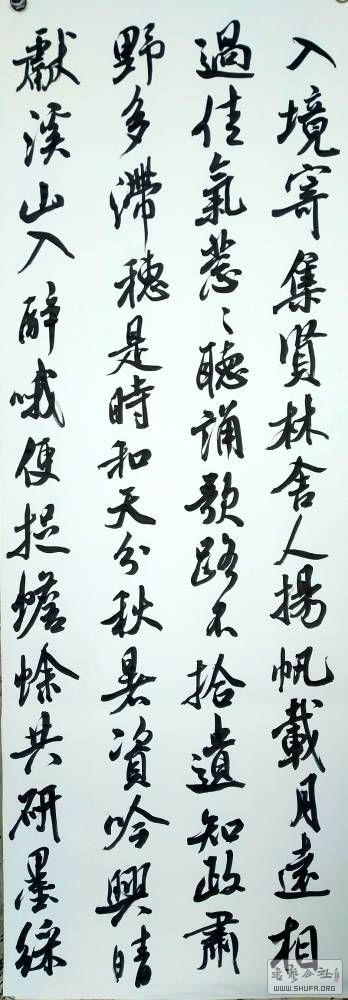 入境寄集賢林舍人揚帆載月遠相
過佳氣葱々聽誦歌路不拾遺知政肅
野多滯穗是時和天分秋暑資吟興晴
獻溪山入醉哦便捉蟾蜍共研墨綵
WWW.SHUFA.ORG